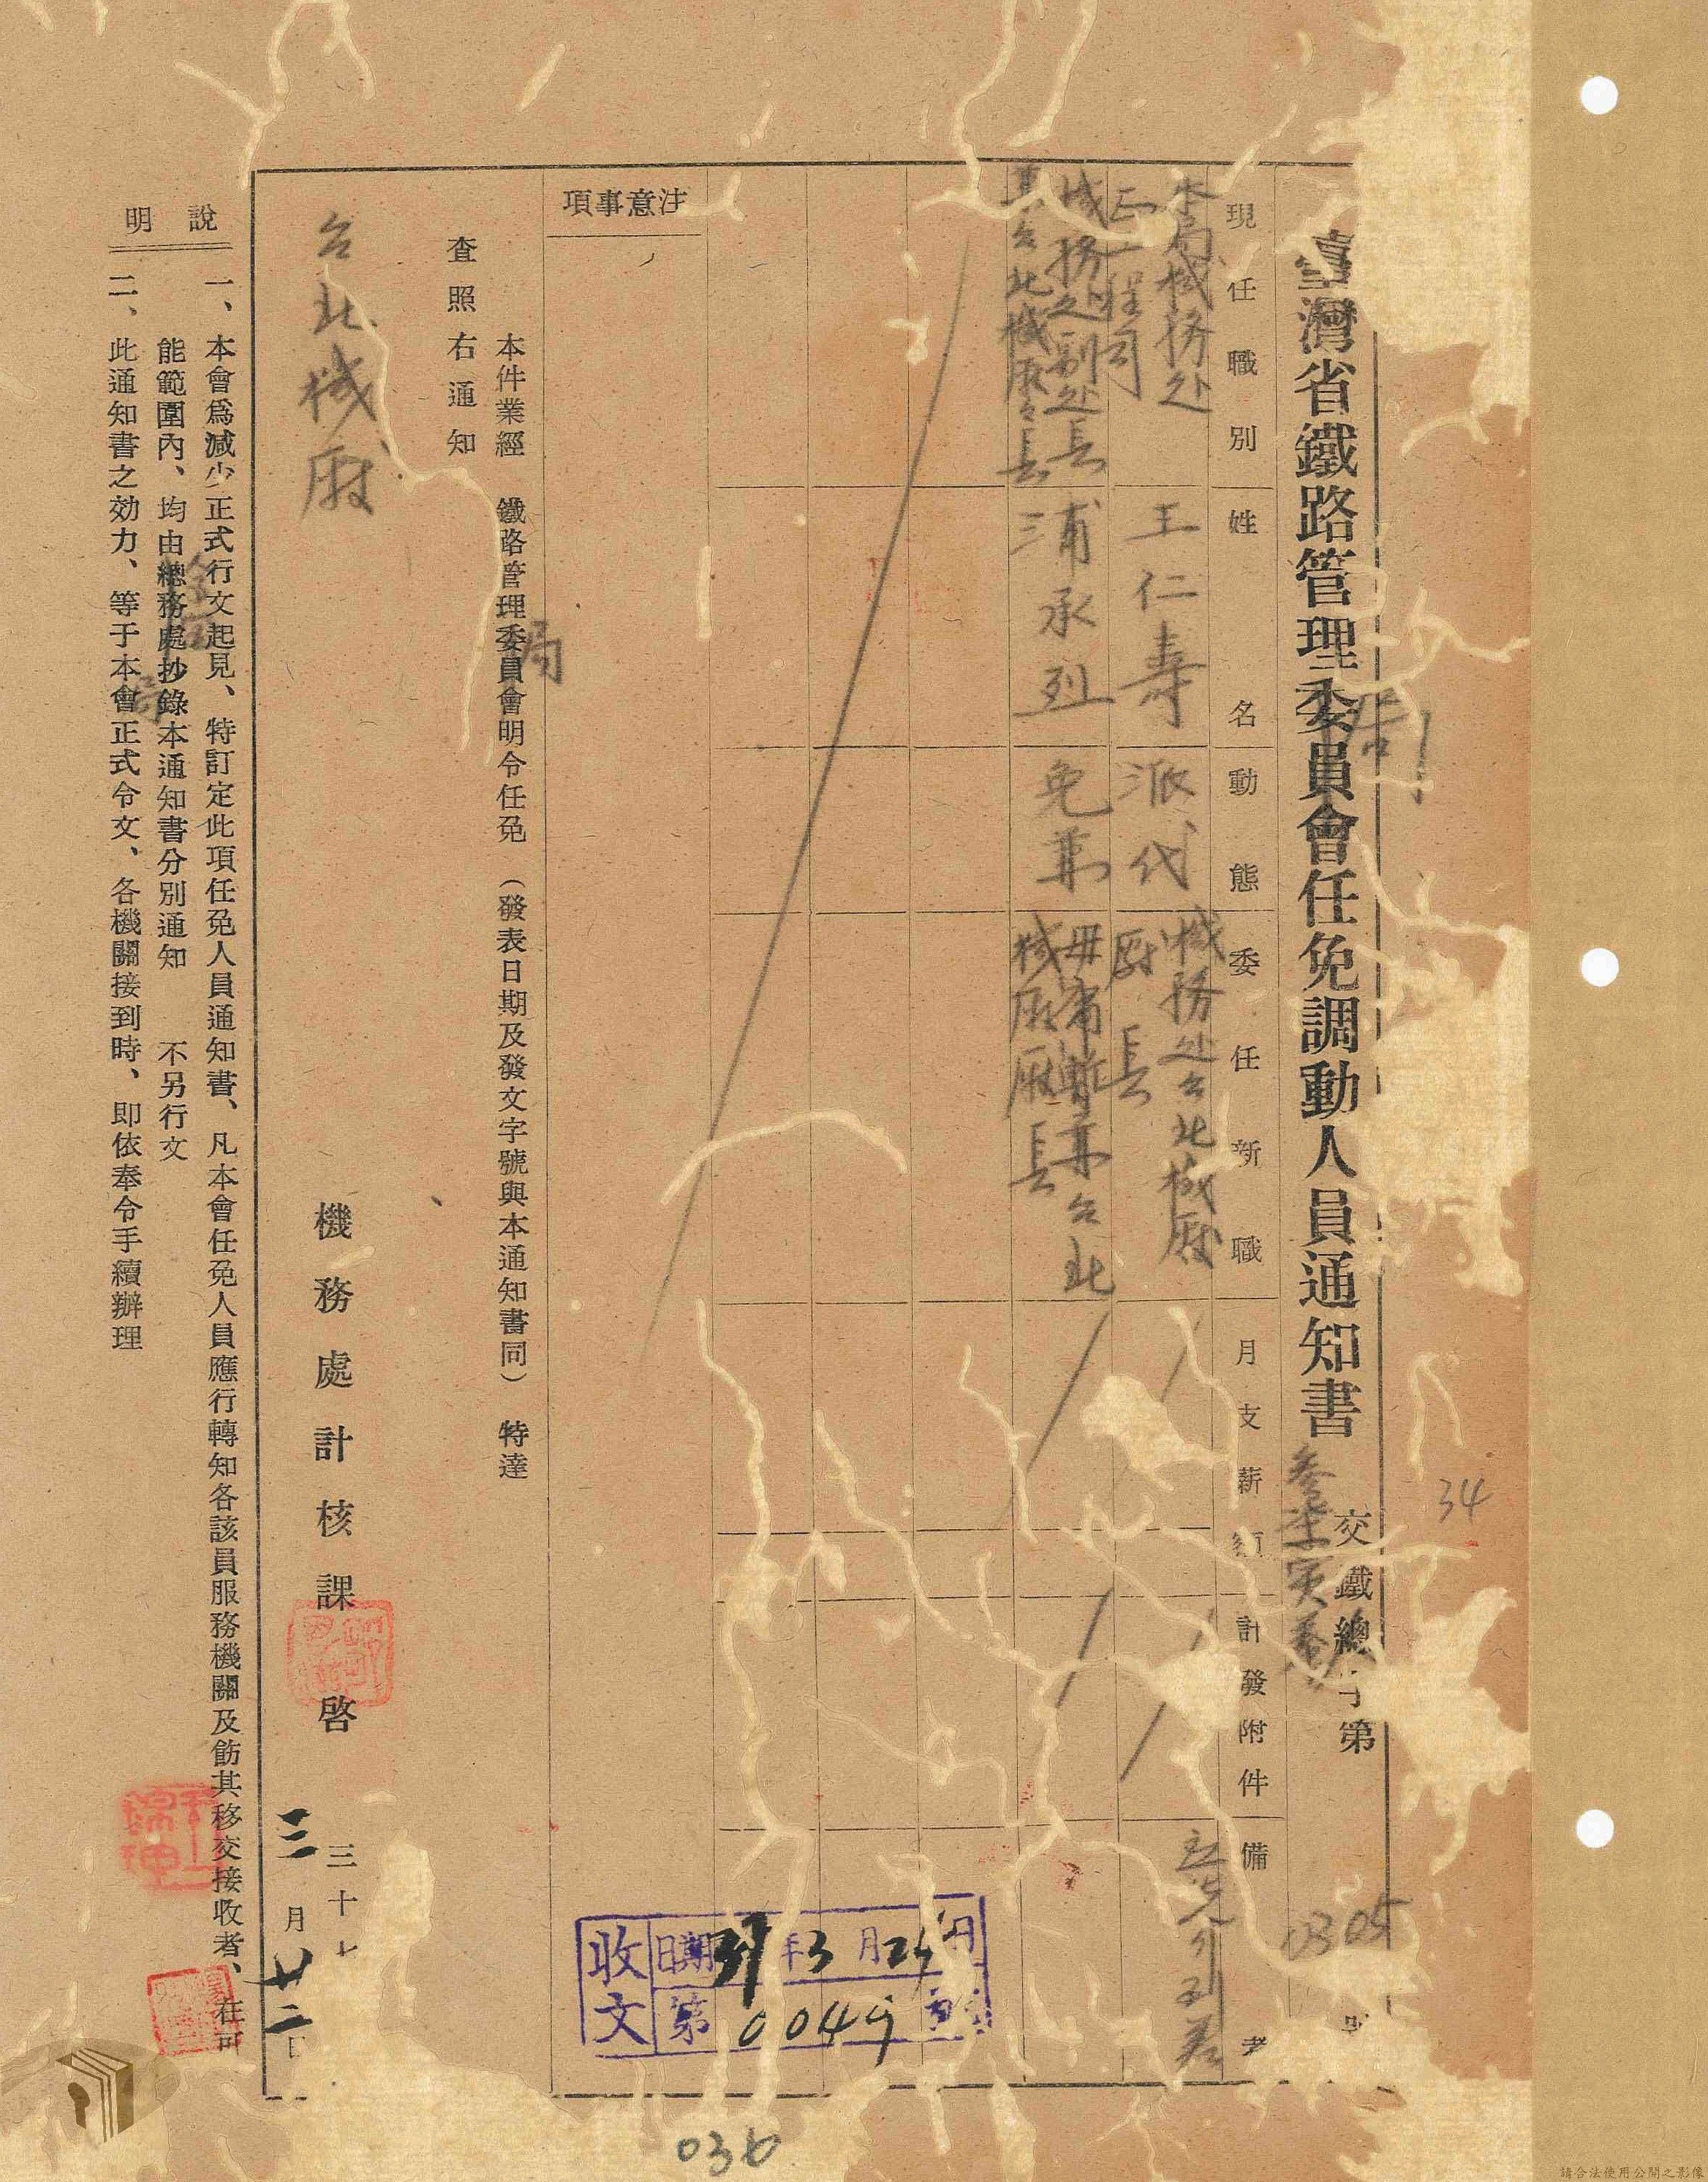 臺灣省鐵路管理委員會任免調動人員通知書
交鐵總字第
0305
34
現任職別
姓名
動態
委任新職
月支薪
計發附件
備考
本局機務处
正工程司
王仁壽
派代
機務处台北機廠
廠長
機務处副处長
兼台北機廠厂長
浦承烈
免兼
毋庸暫兼台北
機廠廠長
注意事項
本件業經 鐵路管理委員會明令任免（發表日期及發文字號與本通知書同） 特達
局
查照右通知
台北機廠
機務處計核課 啓
三十七
三月廿二日
說明
一、本會爲減少正式行文起見、特訂定此項任免人員通知書、凡本會任免人員應行轉知各該員服務機關及飭其移交接收者、在可
能範圍內、均由總務處抄錄本通知書分別通知 不另行文
二、此通知書之効力、等于本會正式令文、各機關接到時、即依奉令手續辦理
收文
日期37年3月24日
第0049號
036
請合法使用公開之影像